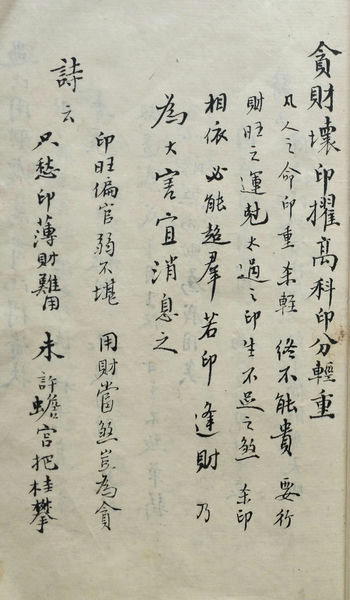 貪財壞印擢高科印分輕重
凡人之命印重杀輕终不能貴要行
財旺之運尅太過之印生不足之煞杀印
相依必能超羣若印逢財乃
為大害宜消息之
詩云
印旺偏官弱不堪 用財當煞豈為貪
只愁印薄財難用 未許蟾宮把桂攀